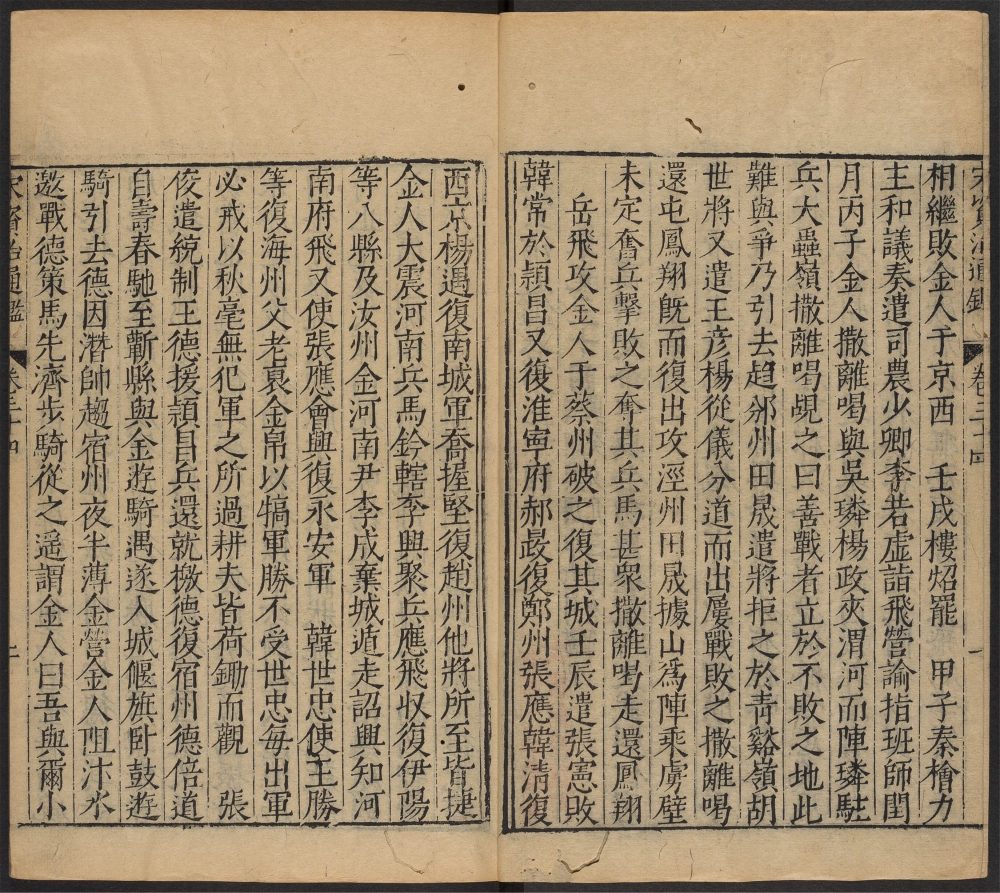 宋資治通鑑 卷三十四 一
相繼敗金人于京西 壬戌樓炤罷 甲子秦檜力
主和議奏遣司農少卿李若虛詣飛營論指班師閏
月丙子金人撒離喝與吳璘楊政夾渭河而陣璘駐
兵大蟲嶺撒離喝覘之曰善戰者立於不敗之地此
難與爭乃引去趋邠州田晟遣將拒之於青谿嶺胡
世將又遣王彦楊從儀分道而出屢戰敗之撒離喝
還屯鳳翔旣而復出攻涇州田晟據山爲陣乘虜壁
未定奮兵擊敗之奪其兵馬甚衆撒離喝走還鳳翔
岳飛攻金人于蔡州破之復其城壬辰遣張憲敗
韓常於潁昌又復淮寧府郝晸復鄭州張應韓清復
西京楊遇復南城軍喬握堅復趙州他將所至皆捷
金人大震河南兵馬鈐轄李興聚兵應飛収復伊陽
等八縣及汝州金河南尹李成棄城遁走詔興知河
南府飛又使張應會興復永安軍 韓世忠使王勝
等復海州父老裒金帛以犒軍勝不受世忠每出軍
必戒以秋毫無犯軍之所過耕夫皆荷鋤而觀 張
俊遣統制王德援潁自兵還就檄德復宿州德倍道
自壽春馳至蘄縣與金遊騎遇遂入城偃旗卧鼓遊
騎引去德因潛帥趨宿州夜半薄金營金人阻汴水
邀戰德策馬先濟步騎從之遥謂金人曰吾與爾小
宋資治通鑑 卷三十四 二